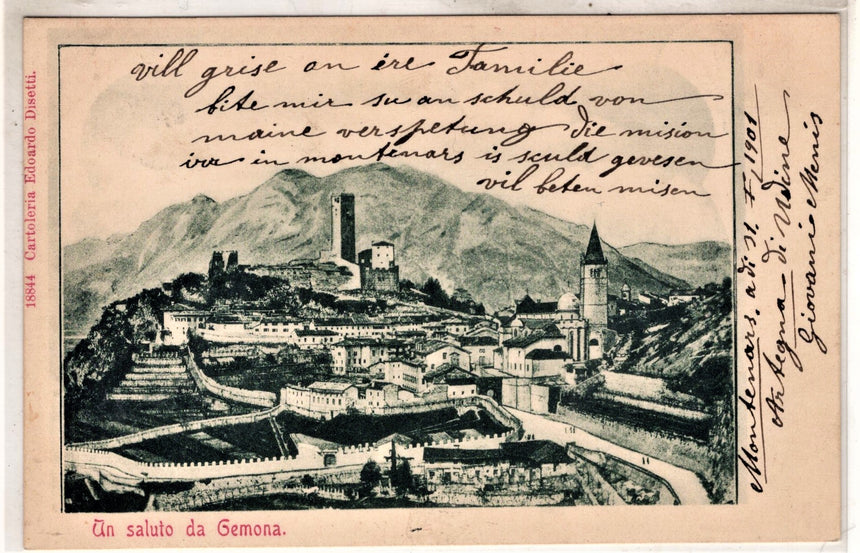 vill grise an ere Familie
bite mir su an schuld von
maine verspetung die mision
in montenars is sculd gevesen
vil beten misen
Montenars. a di 21. F. 1901
Artegna di Udine
Giovani Menis
18844 Cartoleria Edoardo Disetti.
Un saluto da Gemona.